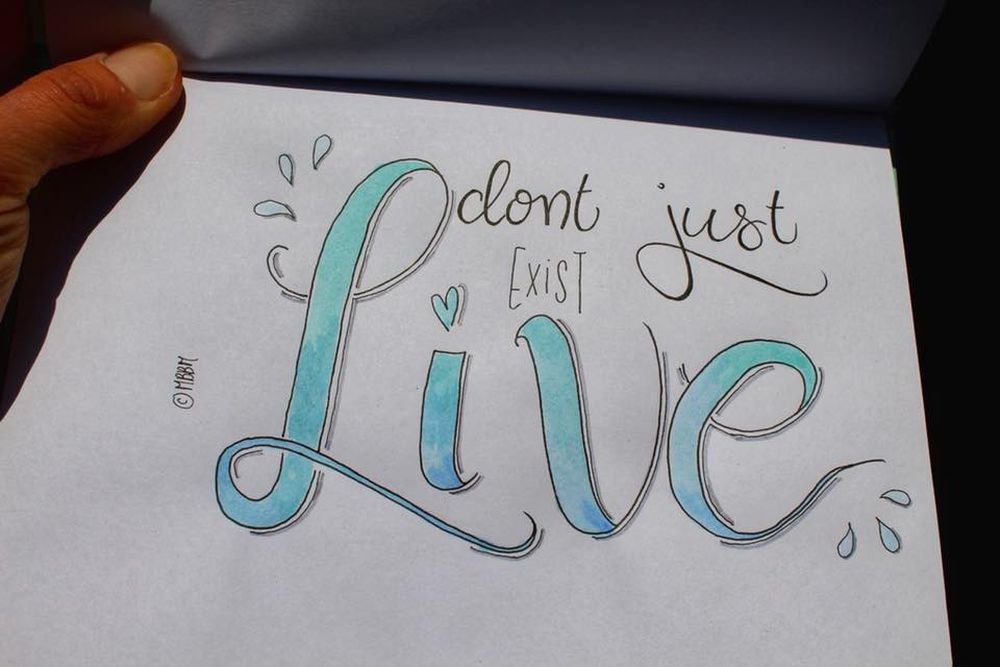 dont just
EXiST
Live
© MBBM